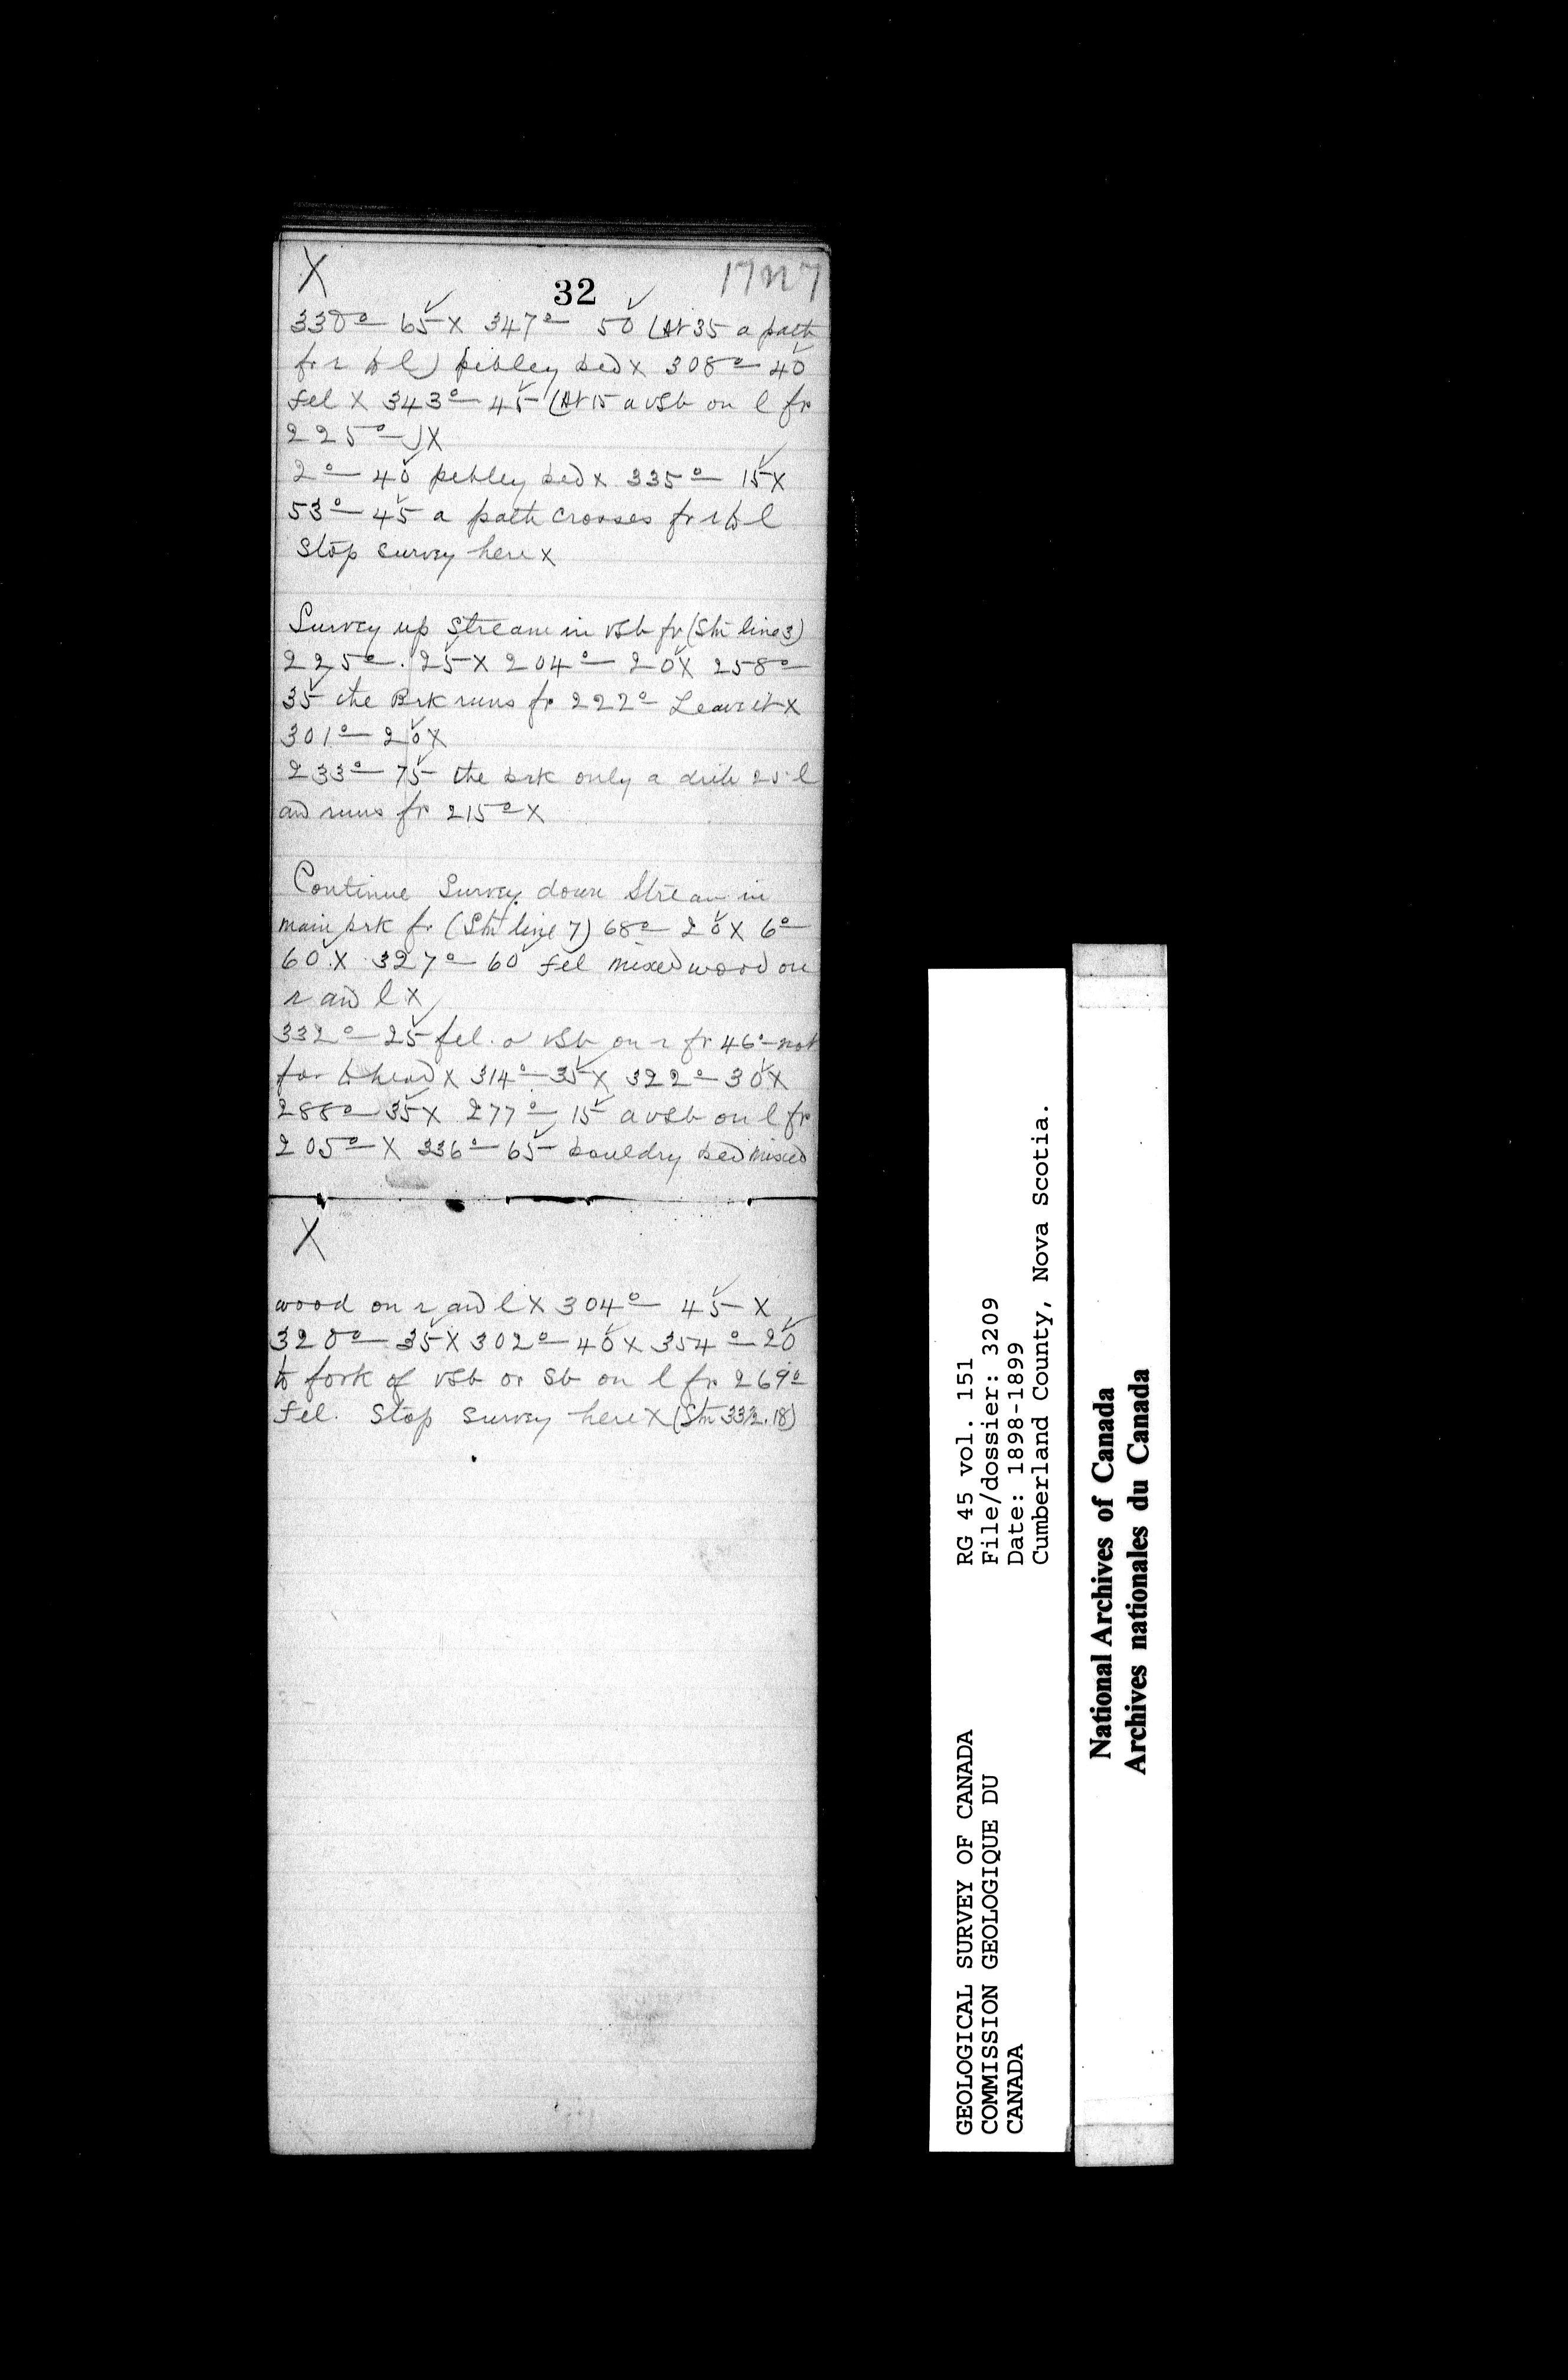 X 32 17 N 7
330° — 65 X 347° — 50 (At 35 a path
fr r to l) pebley bed X 308° — 40
fel X 343° — 45 (At 15 a vSb on l fr
225° —) X
2° — 40 pebley bed X 335° — 15 X
53° — 45 a path crosses fr r to l
Stop survey here X
Survey up stream in vSb fr (Stn line 3)
225° — 25 X 204° — 20 X 258° —
35 the Brk runs fr 222° Leave it X
301° — 20 X
233° — 75 the brk only a 25 l
and runs fr 215° X
Continue Survey down Stream in
main brk fr (Stn line 7) 68° — 20 X 6° —
60 X 327° — 60 fel mixed wood on
r and l X
332° — 25 fel. a vSb on r fr 46° — not
far to head X 314° — 35 X 322° — 30 X
288° — 35 X 277° — 15 a vSb on l fr
205° — X 336° — 65 bouldry bed mixed
X
wood on r and l X 304° — 45 X
320° — 35 X 302° — 40 X 354° — 20
to fork of vSb or Sb on l fr 269°
fel. Stop survey here X (Stn 33½.18)
GEOLOGICAL SURVEY OF CANADA
COMMISSION GEOLOGIQUE DU
CANADA
RG 45 vol. 151
File/dossier: 3209
Date: 1898-1899
Cumberland County, Nova Scotia.
National Archives of Canada
Archives nationales du Canada